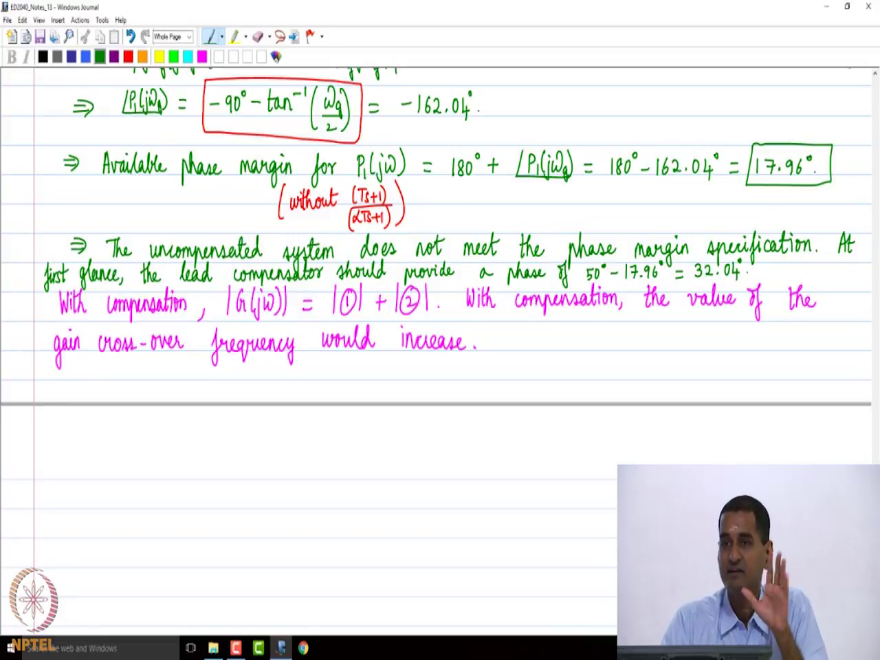 ED2040_Notes_13 - Windows Journal
File Edit View Insert Actions Tools Help
Whole Page
B I
⇒ ∠P₁(jωg) = -90° - tan⁻¹(ωg/2) = -162.04°.
⇒ Available phase margin for P₁(jω) = 180° + ∠P₁(jωg) = 180° - 162.04° = 17.96°.
(without (Ts+1)/(αTs+1))
⇒ The uncompensated system does not meet the phase margin specification. At
first glance, the lead compensator should provide a phase of 50° - 17.96° = 32.04°.
With compensation, |G(jω)| = |①| + |②|. With compensation, the value of the
gain cross-over frequency would increase.
NPTEL
the web and Windows